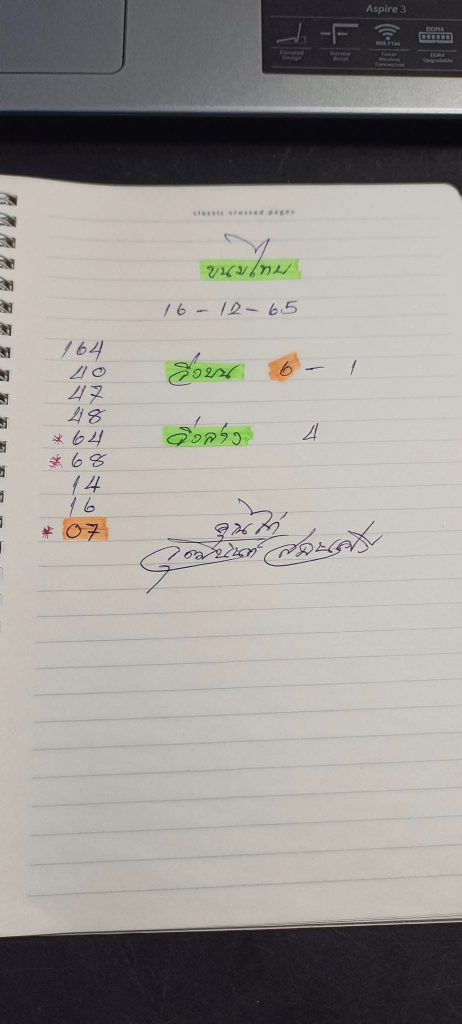 Aspire 3
DDR4
802.11ac
Narrow
Bezel
Faster
Wireless
Connection
DDR4
Upgradable
Design
classic crossed pages
ขนมไทย
16-12-65
164
40 วิ่งบน 6 - 1
47
48
*64 วิ่งล่าง 4
*68
14
16
*07